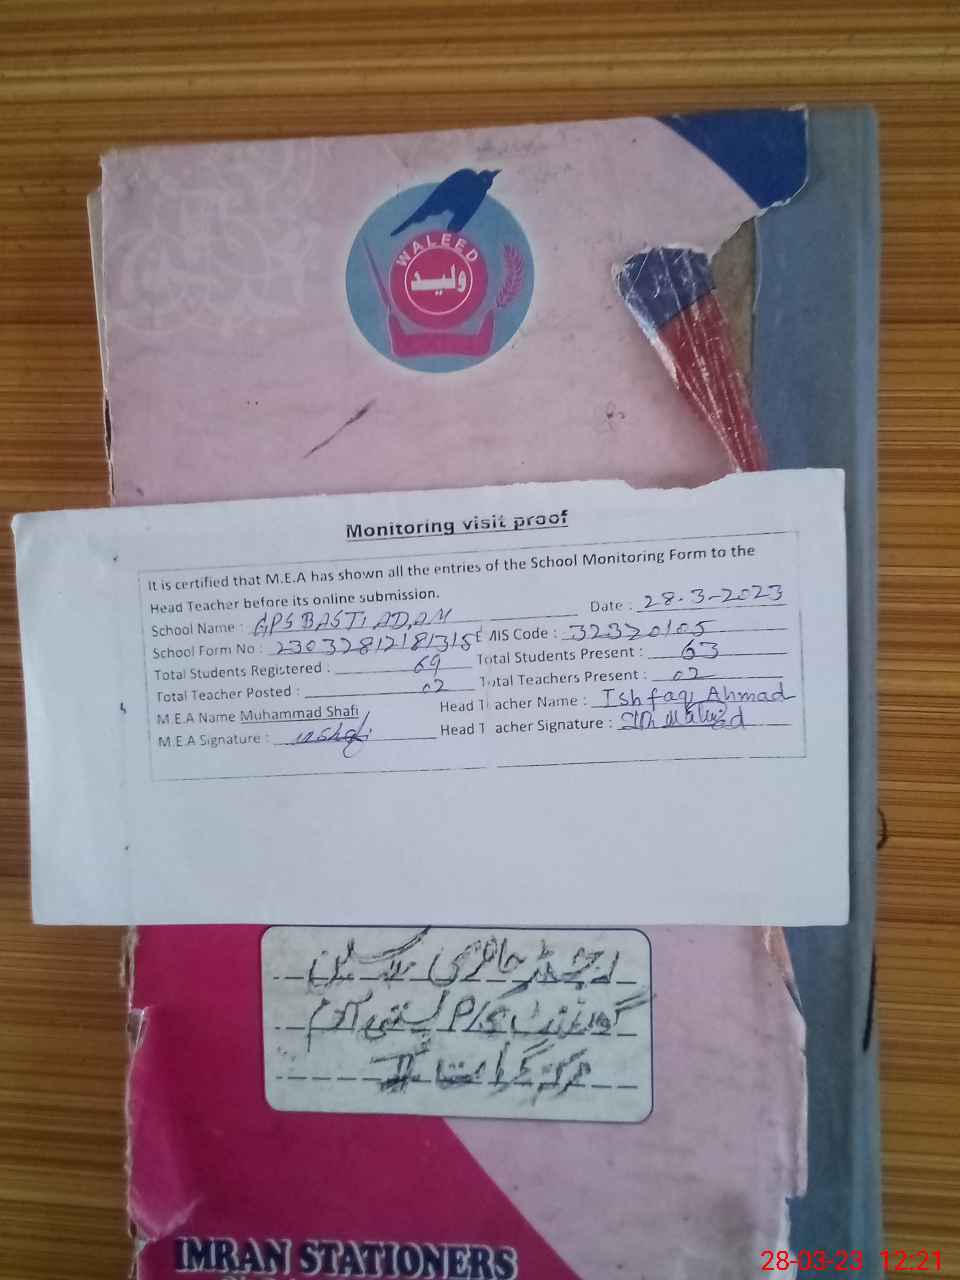 WALEED
ولید
Monitoring visit proof
It is certified that M.E.A has shown all the entries of the School Monitoring Form to the
Head Teacher before its online submission.
School Name : GPS BASTI ADAM Date : 28.3-2023
School Form No : 23032812181315 EMIS Code : 32320105
Total Students Registered : 69 Total Students Present : 63
Total Teacher Posted : 02 Total Teachers Present : 02
M.E.A Name Muhammad Shafi Head Teacher Name : Ishfaq Ahmad
M.E.A Signature : Head Teacher Signature :
رجسٹر حاضری مدرسین
گورنمنٹ P/S بستی آدم
مرکز گجرات
IMRAN STATIONERS
28-03-23 12:21